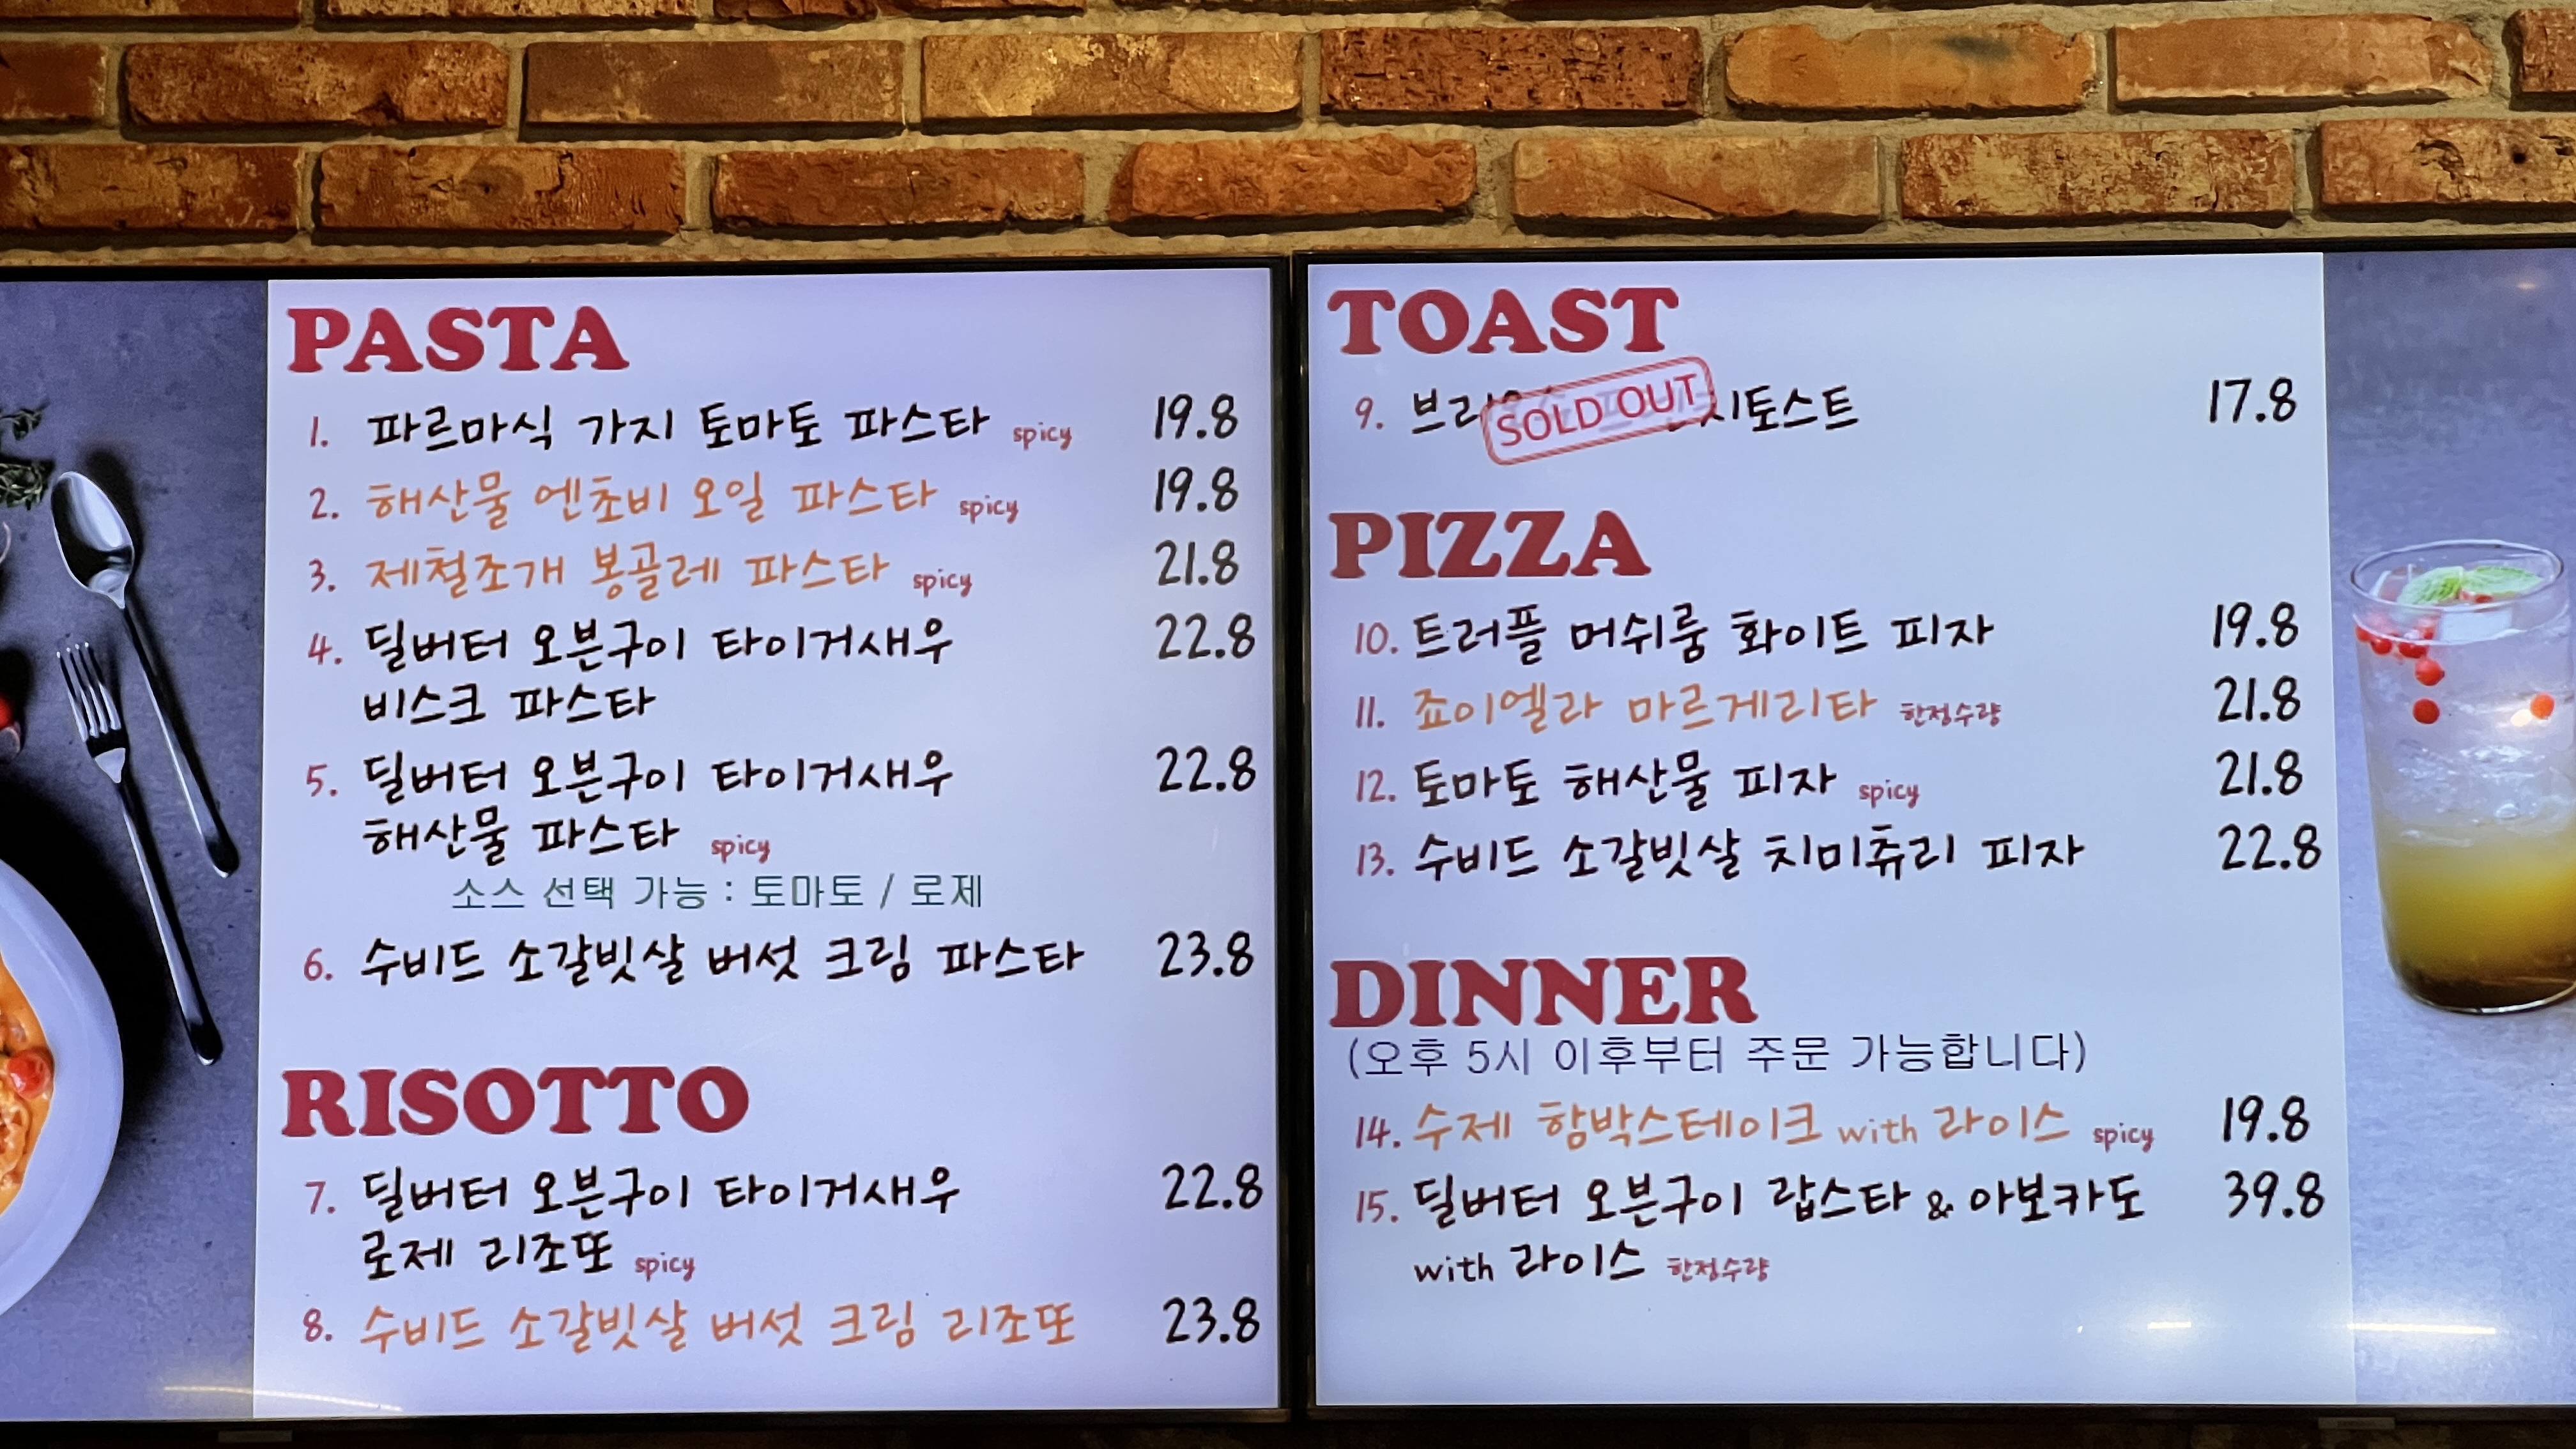 PASTA
1. 파르마식 가지 토마토 파스타 spicy 19.8
2. 해산물 엔초비 오일 파스타 spicy 19.8
3. 제철조개 봉골레 파스타 spicy 21.8
4. 딜버터 오븐구이 타이거새우 22.8
비스크 파스타
5. 딜버터 오븐구이 타이거새우 22.8
해산물 파스타 spicy
소스 선택 가능 : 토마토 / 로제
6. 수비드 소갈빗살 버섯 크림 파스타 23.8
RISOTTO
7. 딜버터 오븐구이 타이거새우 22.8
로제 리조또 spicy
8. 수비드 소갈빗살 버섯 크림 리조또 23.8
TOAST
9. SOLD OUT 17.8
PIZZA
10. 트러플 머쉬룸 화이트 피자 19.8
11. 죠이엘라 마르게리타 한정수량 21.8
12. 토마토 해산물 피자 spicy 21.8
13. 수비드 소갈빗살 치미츄리 피자 22.8
DINNER
(오후 5시 이후부터 주문 가능합니다)
14. 수제 함박스테이크 with 라이스 spicy 19.8
15. 딜버터 오븐구이 랍스타 & 아보카도 39.8
with 라이스 한정수량